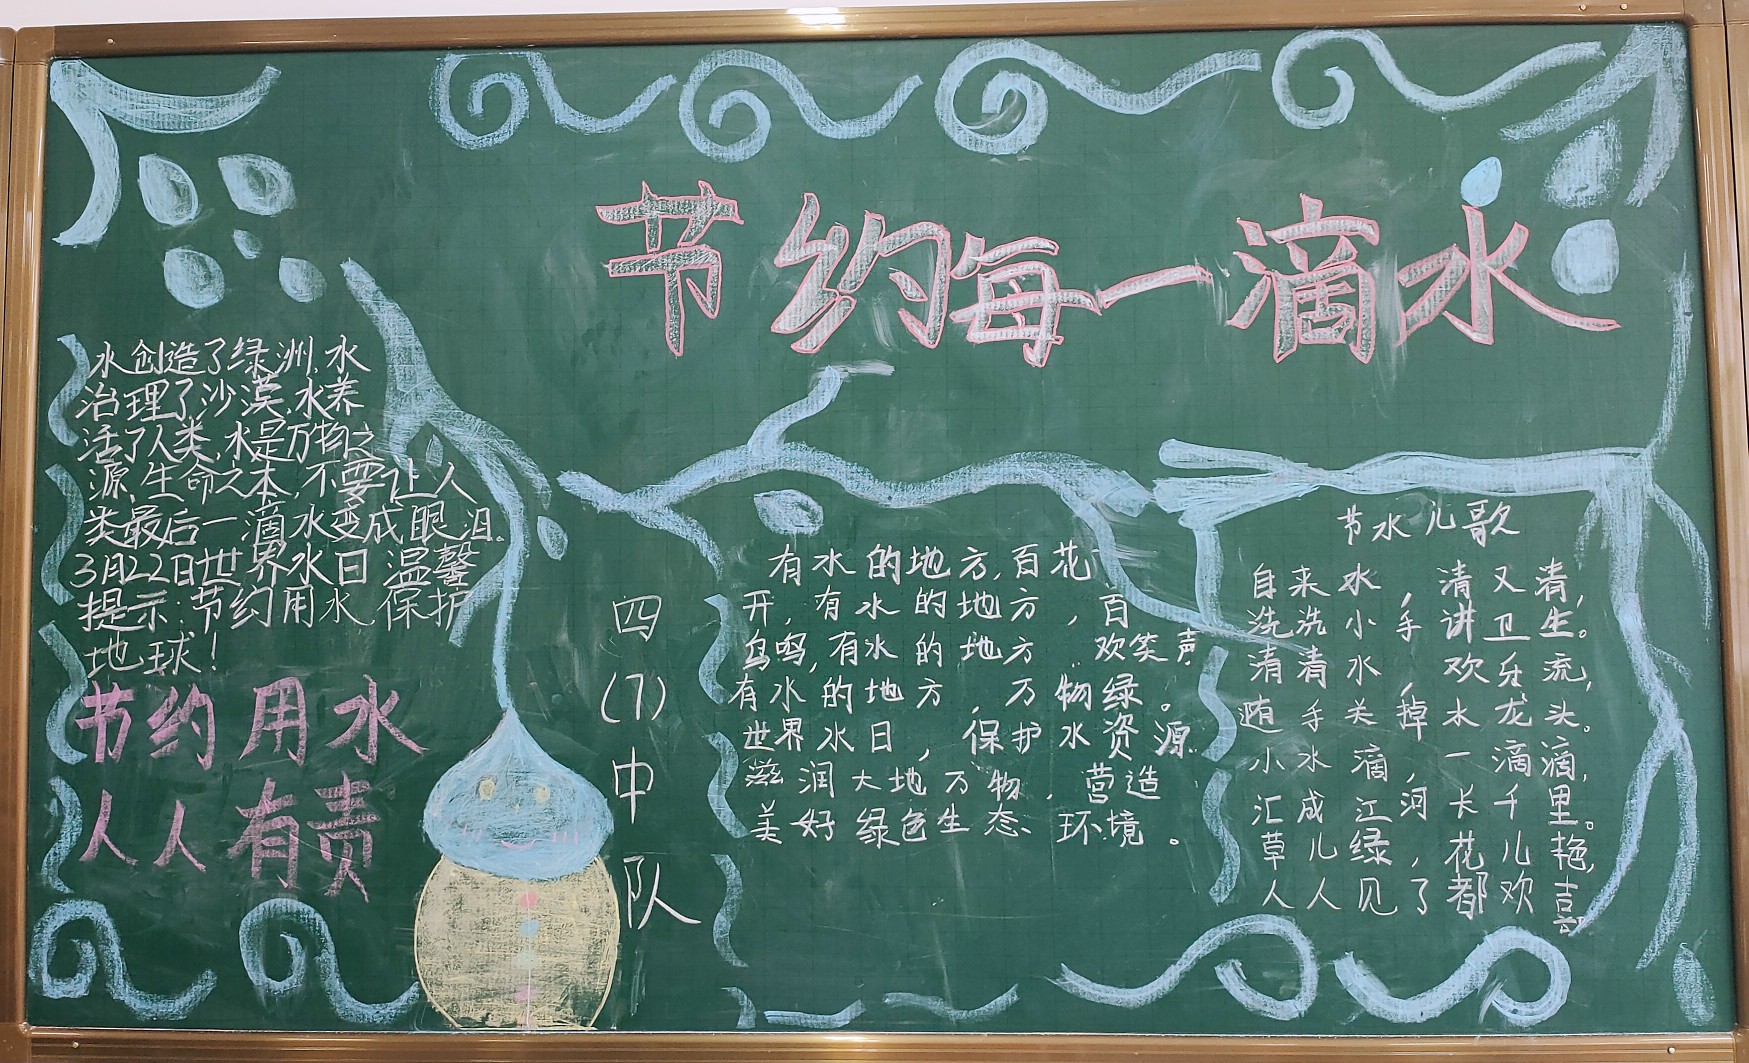 节约每一滴水
水创造了绿洲,水
治理了沙漠,水养
活了人类,水是万物之
源,生命之本,不要让人
类最后一滴水变成眼泪。
3月22日世界水日 温馨
提示:节约用水 保护
地球!
节约用水
人人有责
四(7)中队
有水的地方,百花
开,有水的地方,百
鸟鸣,有水的地方 欢笑声
有水的地方,万物绿。
世界水日,保护水资源
滋润大地万物,营造
美好绿色生态环境。
节水儿歌
自来水,清又清,
洗洗小手讲卫生。
清清水 欢乐流,
随手关掉水龙头。
小水滴,一滴滴,
汇成江河长千里。
草儿绿,花儿艳,
人人见了都欢喜